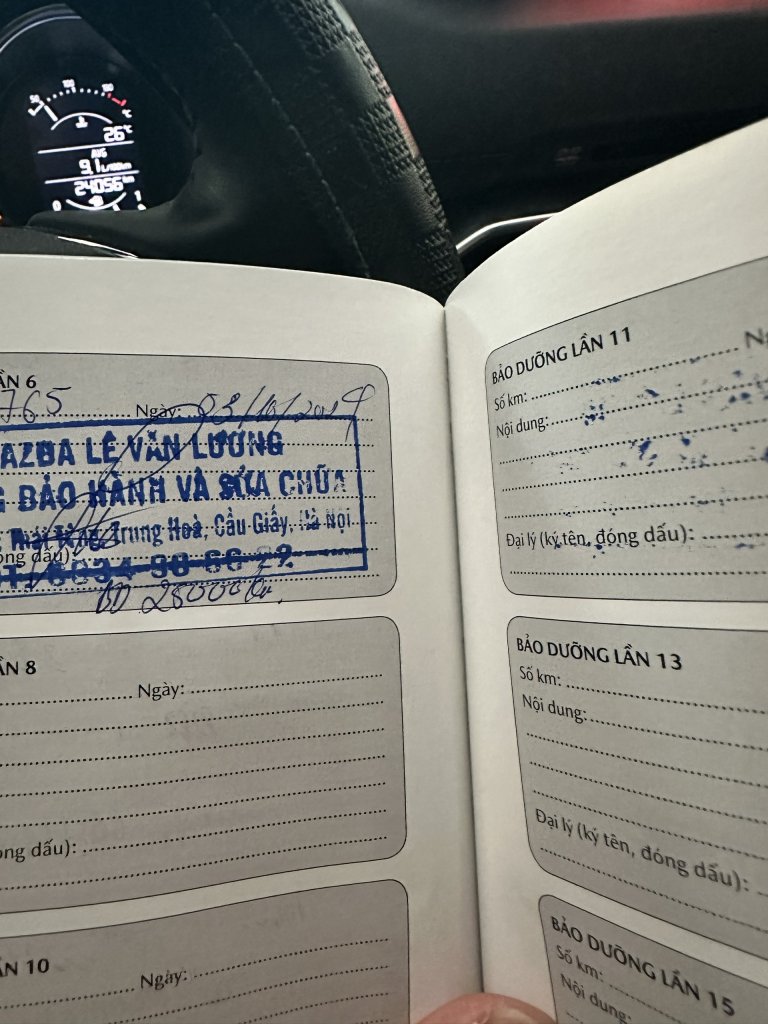 26°C
AVG
9.1 L/100km
24056 km
ẦN 6
765 Ngày: 03/10/2019
AZDA LÊ VĂN LƯƠNG
G BẢO HÀNH VÀ SỬA CHỮA
Trung Hoà, Cầu Giấy, Hà Nội
óng dấu):
BD 28000 Km
ẦN 8
Ngày:
óng dấu):
ẦN 10
Ngày:
BẢO DƯỠNG LẦN 11
Số km:
Nội dung:
Đại lý (ký tên, đóng dấu):
BẢO DƯỠNG LẦN 13
Số km:
Nội dung:
Đại lý (ký tên, đóng dấu):
BẢO DƯỠNG LẦN 15
Số km:
Nội dung: